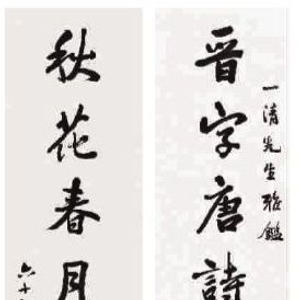 一清先生雅鑑
晋字唐詩
秋花春月
六十